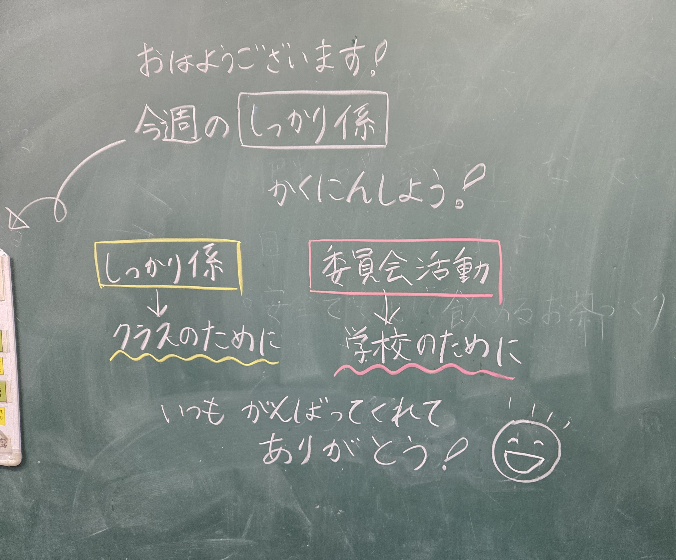 おはようございます!
今週の しっかり係
かくにんしよう!
しっかり係
↓
クラスのために
委員会活動
↓
学校のために
いつも がんばってくれて
ありがとう!